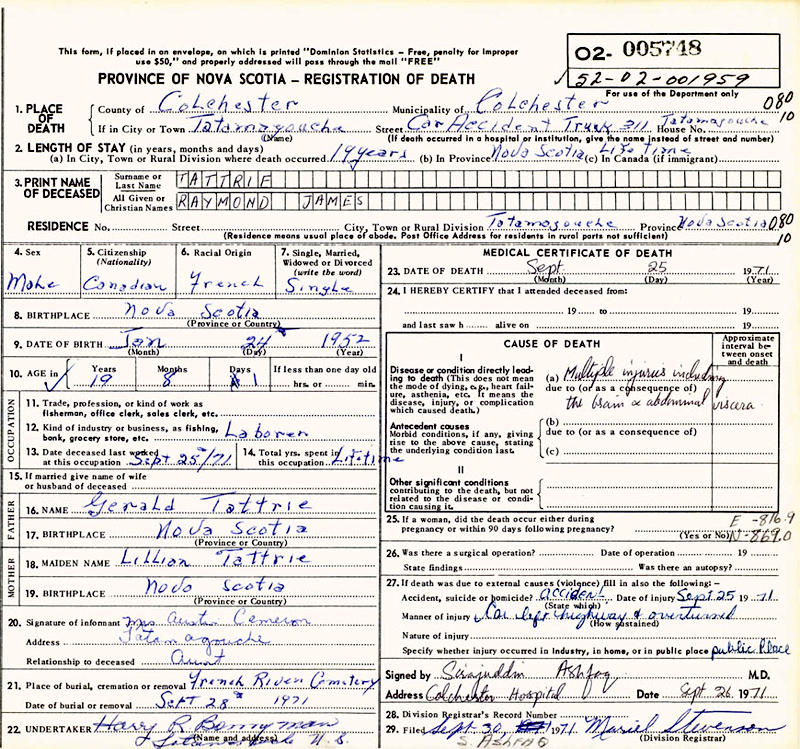 This form, if placed in an envelope, on which is printed "Dominion Statistics – Free, penalty for improper
use $50," and properly addressed will pass through the mail "FREE"
PROVINCE OF NOVA SCOTIA – REGISTRATION OF DEATH
02- 005748
52-02-001959
For use of the Department only
1. PLACE OF DEATH County of Colchester Municipality of Colchester 080
If in City or Town Tatamagouche (Name) Street Car Accident Trunk 311 House No. Tatamagouche 10
(If death occurred in a hospital or institution, give the name instead of street and number)
2. LENGTH OF STAY (in years, months and days)
(a) In City, Town or Rural Division where death occurred 19 years (b) In Province Nova Scotia (c) In Canada (if immigrant) Life time
3. PRINT NAME OF DECEASED
Surname or Last Name TATTRIE
All Given or Christian Names RAYMOND JAMES
RESIDENCE No. Street City, Town or Rural Division Tatamagouche Province Nova Scotia 080
(Residence means usual place of abode. Post Office Address for residents in rural parts not sufficient) 10
4. Sex Male
5. Citizenship (Nationality) Canadian
6. Racial Origin French
7. Single, Married, Widowed or Divorced (write the word) Single
8. BIRTHPLACE Nova Scotia
(Province or Country)
9. DATE OF BIRTH Jan 24 1952
(Month) (Day) (Year)
10. AGE in Years 19 Months 8 Days 1 If less than one day old hrs. or min.
OCCUPATION
11. Trade, profession, or kind of work as fisherman, office clerk, sales clerk, etc.
12. Kind of industry or business, as fishing, bank, grocery store, etc. Laborer
13. Date deceased last worked at this occupation Sept 25/71
14. Total yrs. spent in this occupation Lifetime
15. If married give name of wife or husband of deceased
FATHER
16. NAME Gerald Tattrie
17. BIRTHPLACE Nova Scotia
(Province or Country)
MOTHER
18. MAIDEN NAME Lillian Tattrie
19. BIRTHPLACE Nova Scotia
(Province or Country)
20. Signature of informant Mrs Austin Cameron
Address Tatamagouche
Relationship to deceased Aunt
21. Place of burial, cremation or removal French River Cemetery
Date of burial or removal Sept 28 1971
22. UNDERTAKER Harry R Bonnyman
(Name and address) N.S.
MEDICAL CERTIFICATE OF DEATH
23. DATE OF DEATH Sept 25 1971
(Month) (Day) (Year)
24. I HEREBY CERTIFY that I attended deceased from:
19 to 19
and last saw h alive on 19
CAUSE OF DEATH
Approximate interval between onset and death
I
Disease or condition directly leading to death (This does not mean the mode of dying, e.g., heart failure, asthenia, etc. It means the disease, injury, or complication which caused death.)
(a) Multiple injuries including
due to (or as a consequence of)
the brain & abdominal viscera
Antecedent causes
Morbid conditions, if any, giving rise to the above cause, stating the underlying condition last.
(b)
due to (or as a consequence of)
(c)
II
Other significant conditions contributing to the death, but not related to the disease or condition causing it.
25. If a woman, did the death occur either during pregnancy or within 90 days following pregnancy? (Yes or No)
E -816.9
N-869.0
26. Was there a surgical operation? Date of operation 19
State findings Was there an autopsy?
27. If death was due to external causes (violence) fill in also the following:–
Accident, suicide or homicide? accident Date of injury Sept 25 1971
(State which)
Manner of injury Car left highway & overturned
(How sustained)
Nature of injury
Specify whether injury occurred in industry, in home, or in public place public place
Signed by Sirajuddin Ashfaq M.D.
Address Colchester Hospital Date Sept. 26 1971
28. Division Registrar's Record Number
29. Filed Sept. 30, 1971 Muriel Stevenson
(Division Registrar)